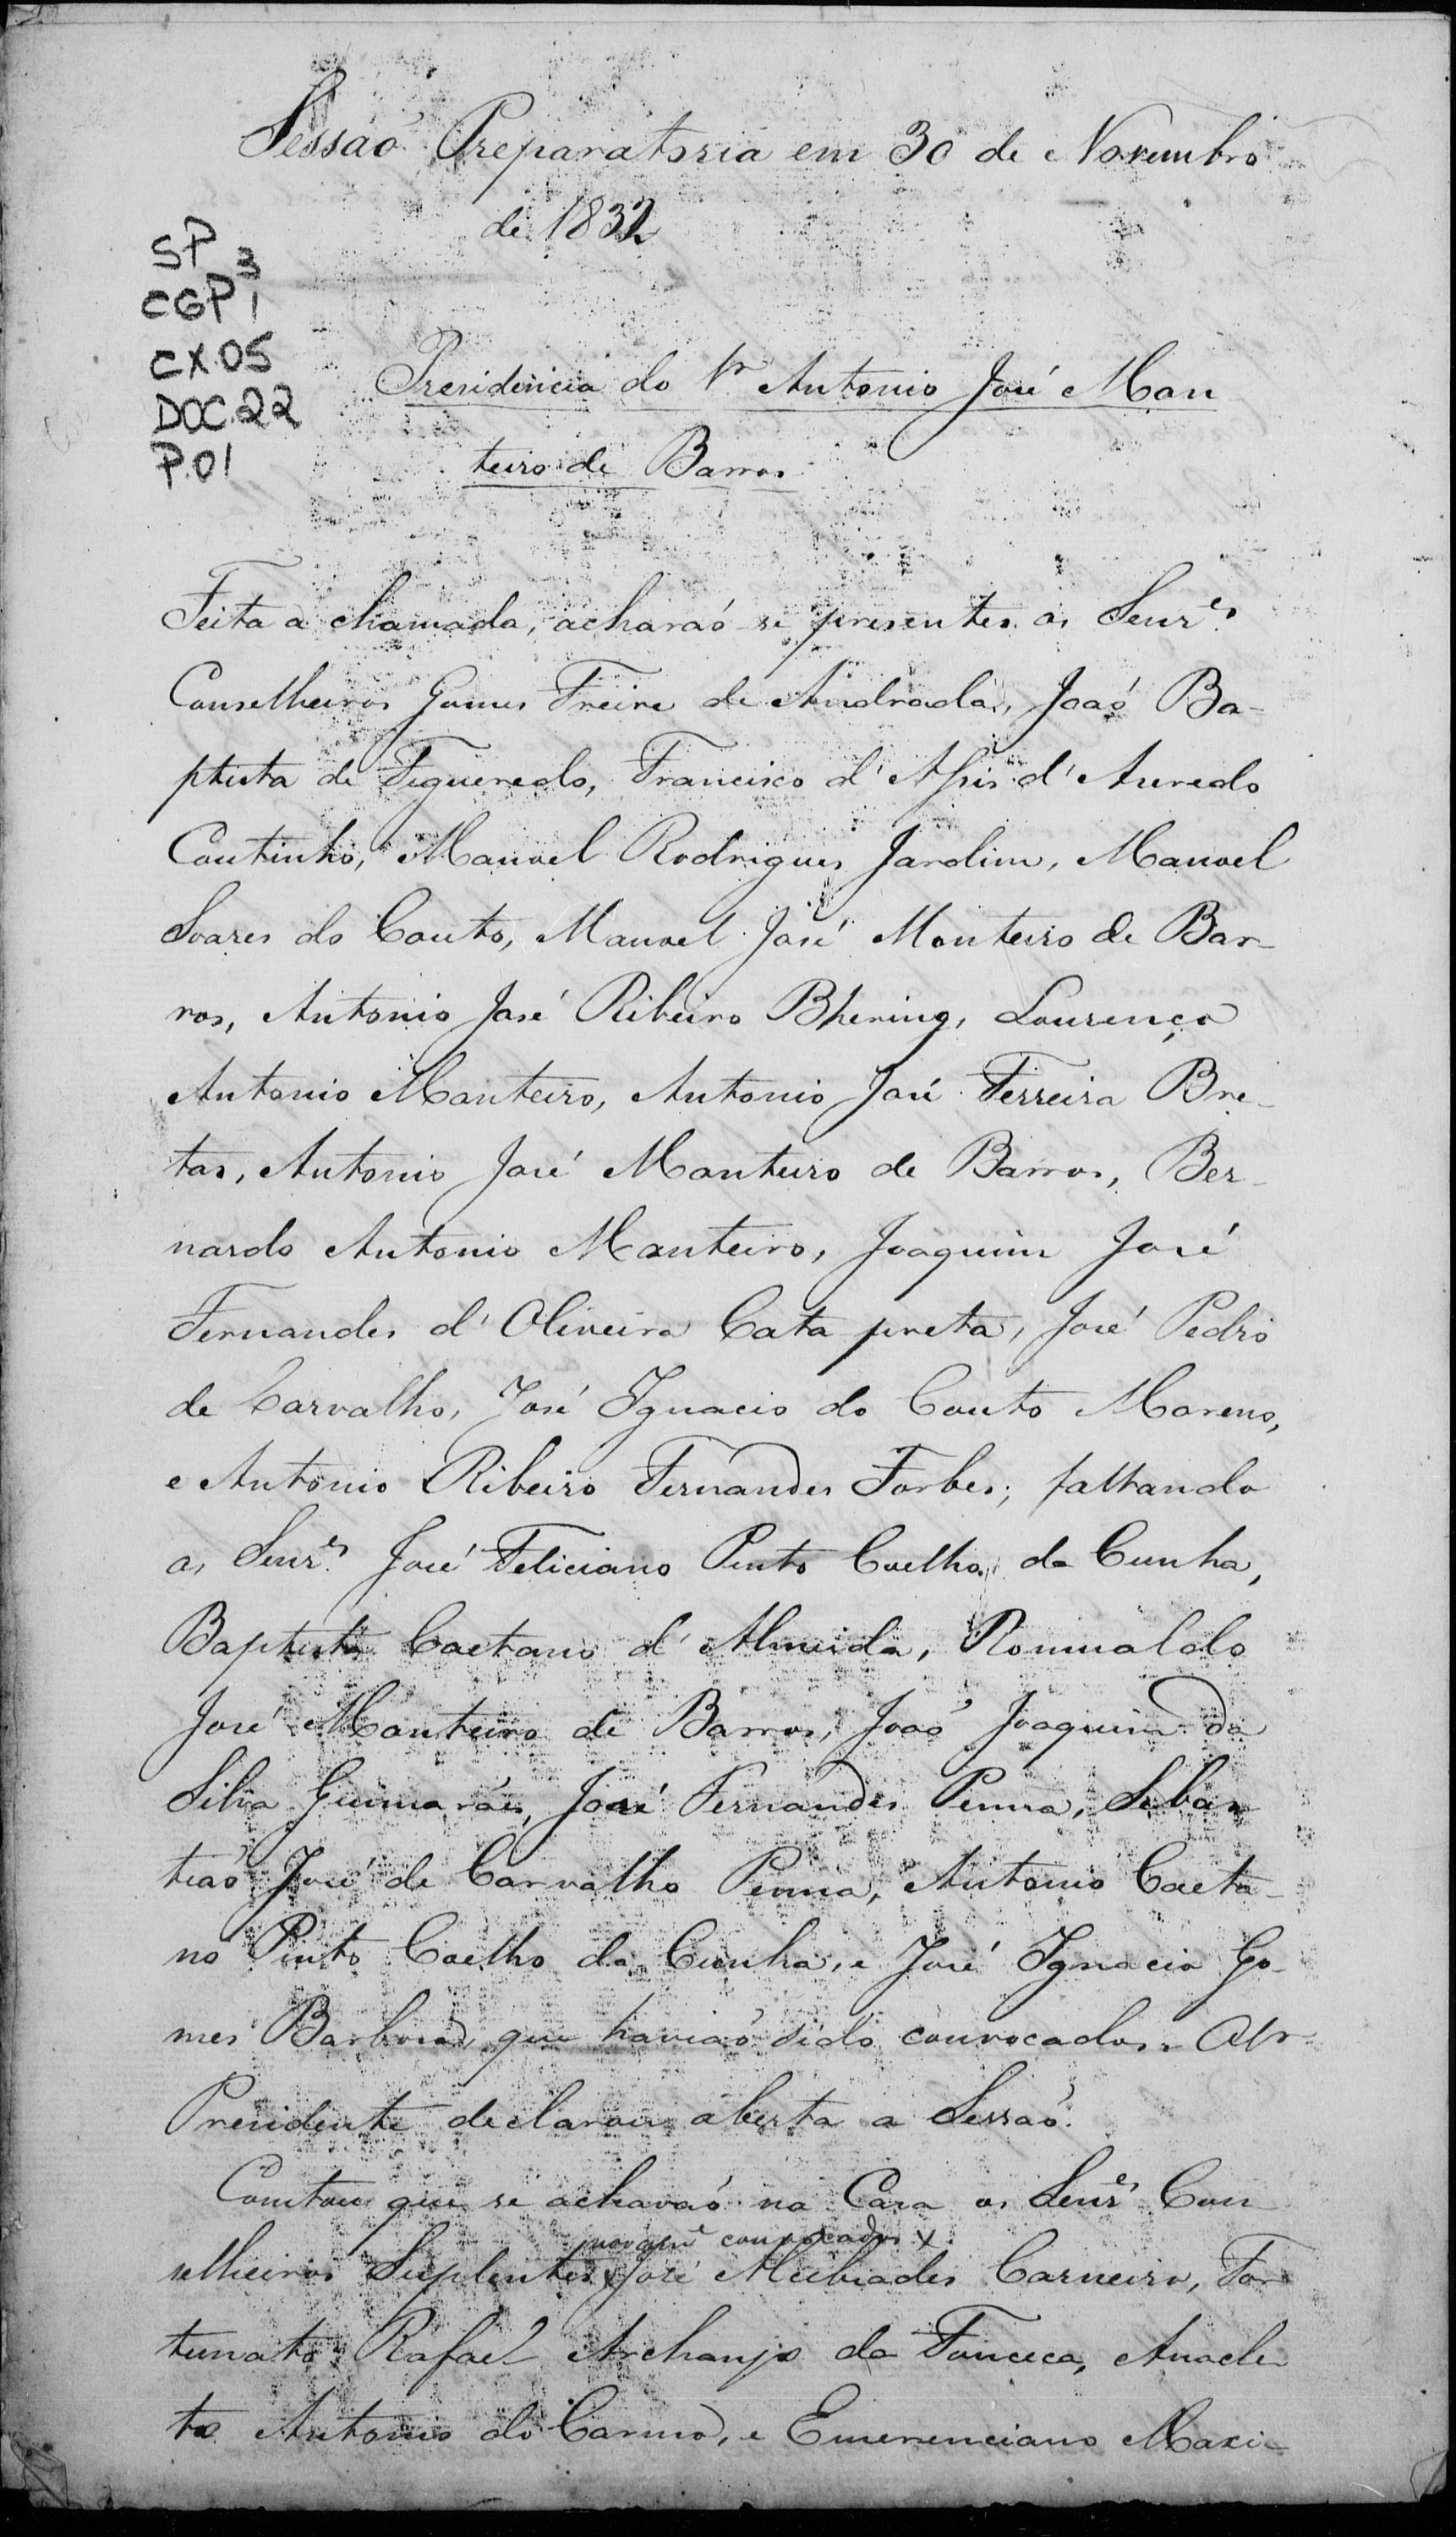 Sessaõ Preparatoria em 30 de Novembro
de 1832
SP
CGP 1 3
CX.05
DOC.22
P.01
Presidencia do Sr Antonio José Mon
teiro de Barros
Feita a chamada, acharaõ-se presentes os Senres
Conselheiros Gomes Freire de Andrada, Joaõ Ba-
ptista de Figueredo, Francisco d'Assis d'Azeredo
Coutinho, Manoel Rodrigues Jardim, Manoel
Soares do Couto, Manoel José Monteiro de Bar-
ros, Antonio José Ribeiro Bhering, Lourenço
Antonio Monteiro, Antonio José Ferreira Bre-
tas, Antonio José Monteiro de Barros, Ber-
nardo Antonio Monteiro, Joaquim José
Fernandes d'Oliveira Cata preta, José Pedro
de Carvalho, José Ignacio do Couto Moreno,
e Antonio Ribeiro Fernandes Forbes; faltando
os Senres José Feliciano Pinto Coelho da Cunha,
Baptista Caetano d'Almeida, Romualdo
José Monteiro de Barros, Joaõ Joaquim da
Silva Guimarães, José Fernandes Penna, Sebas
tiaõ José de Carvalho Penna, Antonio Caeta-
no Pinto Coelho da Cunha, e José Ignacio Go-
mes Barbosa, que haviaõ sido convocados. O Sr
Presidente declarou aberta a Sessaõ.
Constou que se achavaõ na Casa os Senres Con
convocados x
selheiros Suplentes x José Alcebiades Carneiro, For
tunato Rafael Archanjo da Fonceca, Anacle
to Antonio do Carmo, e Emerenciano Maxi-